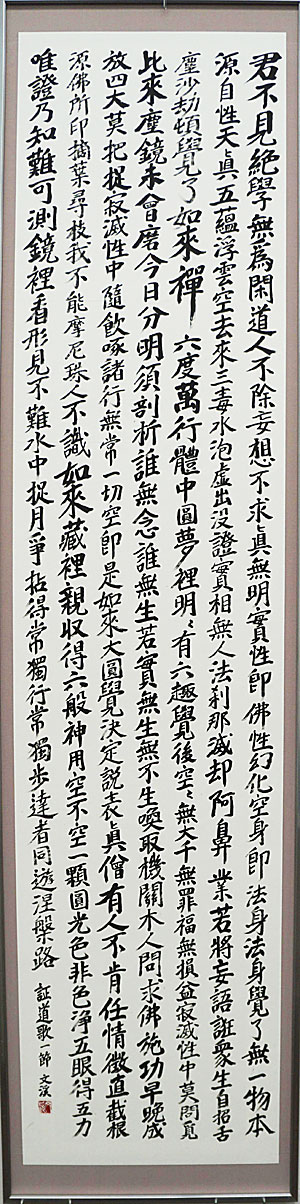 君不見絶學無為閑道人不除妄想不求真無明實性即佛性幻化空身即法身法身覺了無一物本
源自性天真五蘊浮雲空去來三毒水泡虚出没證實相無人法刹那滅却阿鼻業若將妄語誑衆生自招舌
塵沙劫頓覺了如來禪六度萬行體中圓夢裡明〻有六趣覺後空〻無大千無罪福無損益寂滅性中莫問覓
比來塵鏡未曾磨今日分明須剖析誰無念誰無生若實無生無不生喚取機關木人問求佛施功早晚成
放四大莫把捉寂滅性中隨飲啄諸行無常一切空即是如來大圓覺決定説表真僧有人不肯任情徴直截根
源佛所印摘葉尋枝我不能摩尼珠人不識如來藏裡親収得六般神用空不空一顆圓光色非色淨五眼得五力
唯證乃知難可測鏡裡看形見不難水中捉月爭拈得常獨行常獨歩達者同遊涅槃路
証道歌一節 文渓